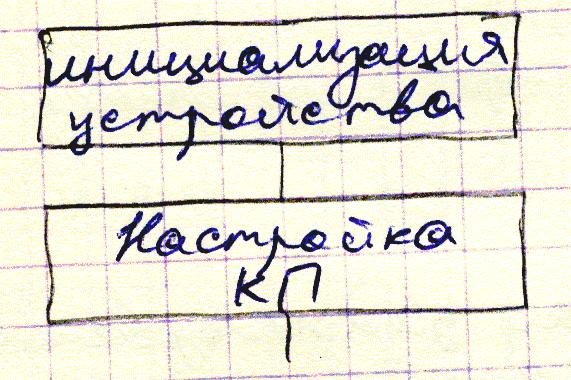 инициализация
устройства
Настройка
КП